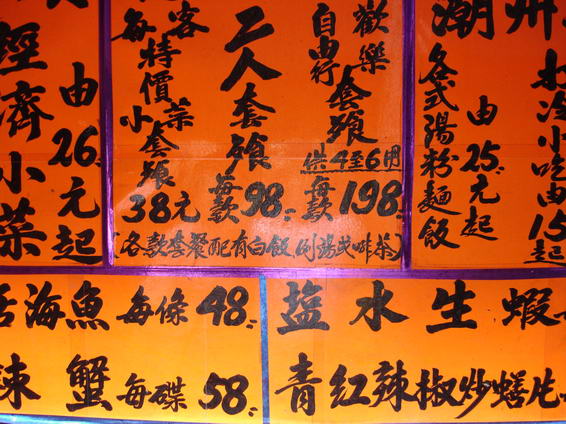 經濟小菜
由26元起
每客
特價
小菜
套飱
38元
二人套飱
每款98.-
歡樂
自由行
套飱
供4至6用
每款198.-
(各款套餐配有白飯例湯或啡茶)
潮州
各式湯粉麵飯
由25元起
打冷小吃由15起
海魚 每條48.-
蟹 每碟58.-
塩水生蝦
青紅辣椒炒蟮片